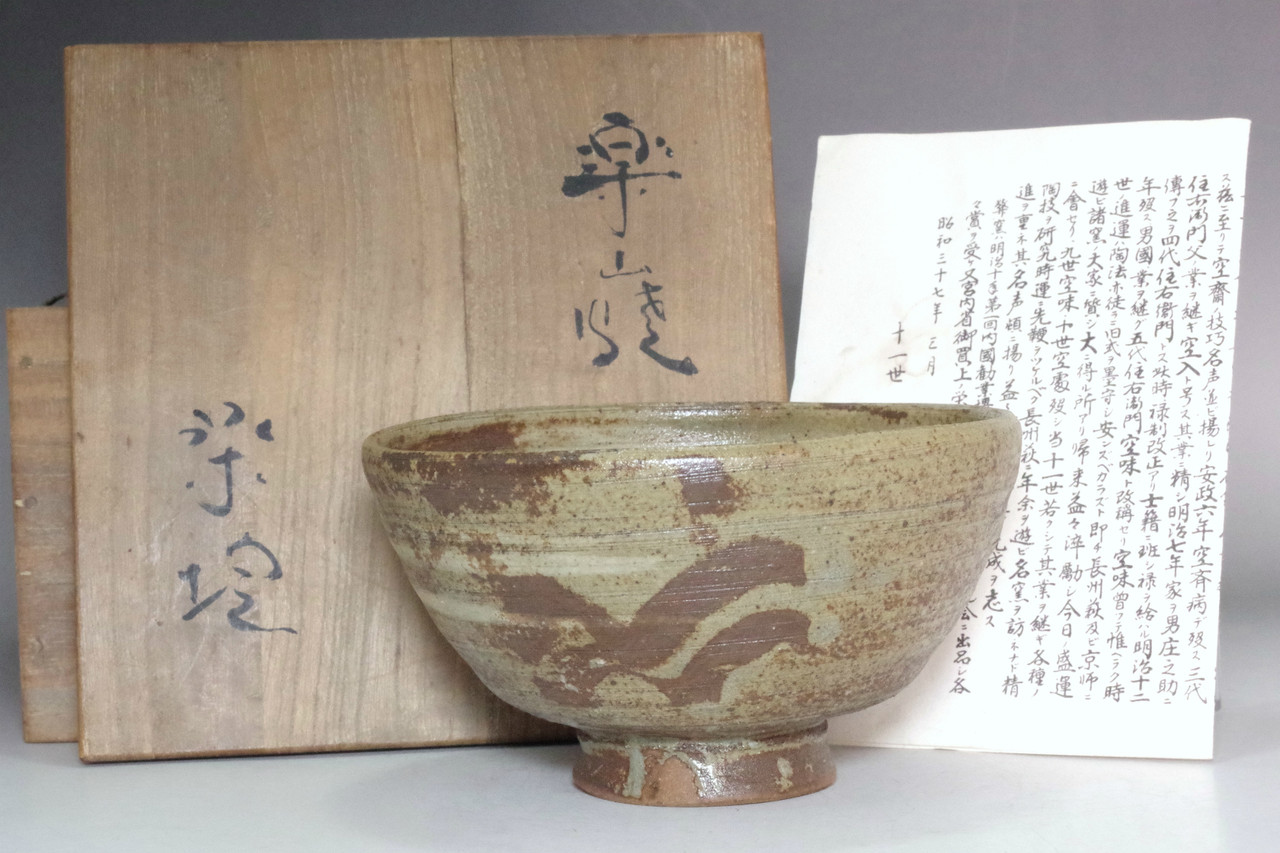 楽山焼
楽㙐
ス茲ニ至リテ空齋ノ技巧名声並ビ揚レリ安政六年空斉病デ歿ス三代
住右衛門父ノ業ヲ継ギ空入ト号ス其業ニ精シ明治七年家ヲ男庄之助ニ
傳フ之ヲ四代住右衛門トス此時禄制改正アリ士籍ニ班シ禄ヲ給ハル明治十二
年歿ス男國業ヲ継グ五代住右衛門空味ト改稱セリ空味曽ツテ惟ヘラク時
世ノ進運ハ陶法亦徒ラニ旧式ヲ墨守シ安ンズベカラズト即チ長州萩及ビ京師ニ
遊ビ諸窯ノ大家ニ質シ大ニ得ル所アリ帰来益々淬励シ今日ノ盛運
ニ會セリ、九世空味十世空處歿シ当十一世若クシテ其ノ業ヲ継ギ各種ノ
陶技ヲ研究時運ニ先鞭ヲツケルベク長州萩ニ年余ヲ遊ビ名窯ヲ訪ネナド精
進ヲ重ネ其ノ名声頓ニ揚リ益
成ヲ志ス
弊窯ハ明治十年第一回内國勧業
会ニ出品シ各
々賞ヲ受ケ又宮内省御買上ノ栄
昭和三十七年三月
十一世